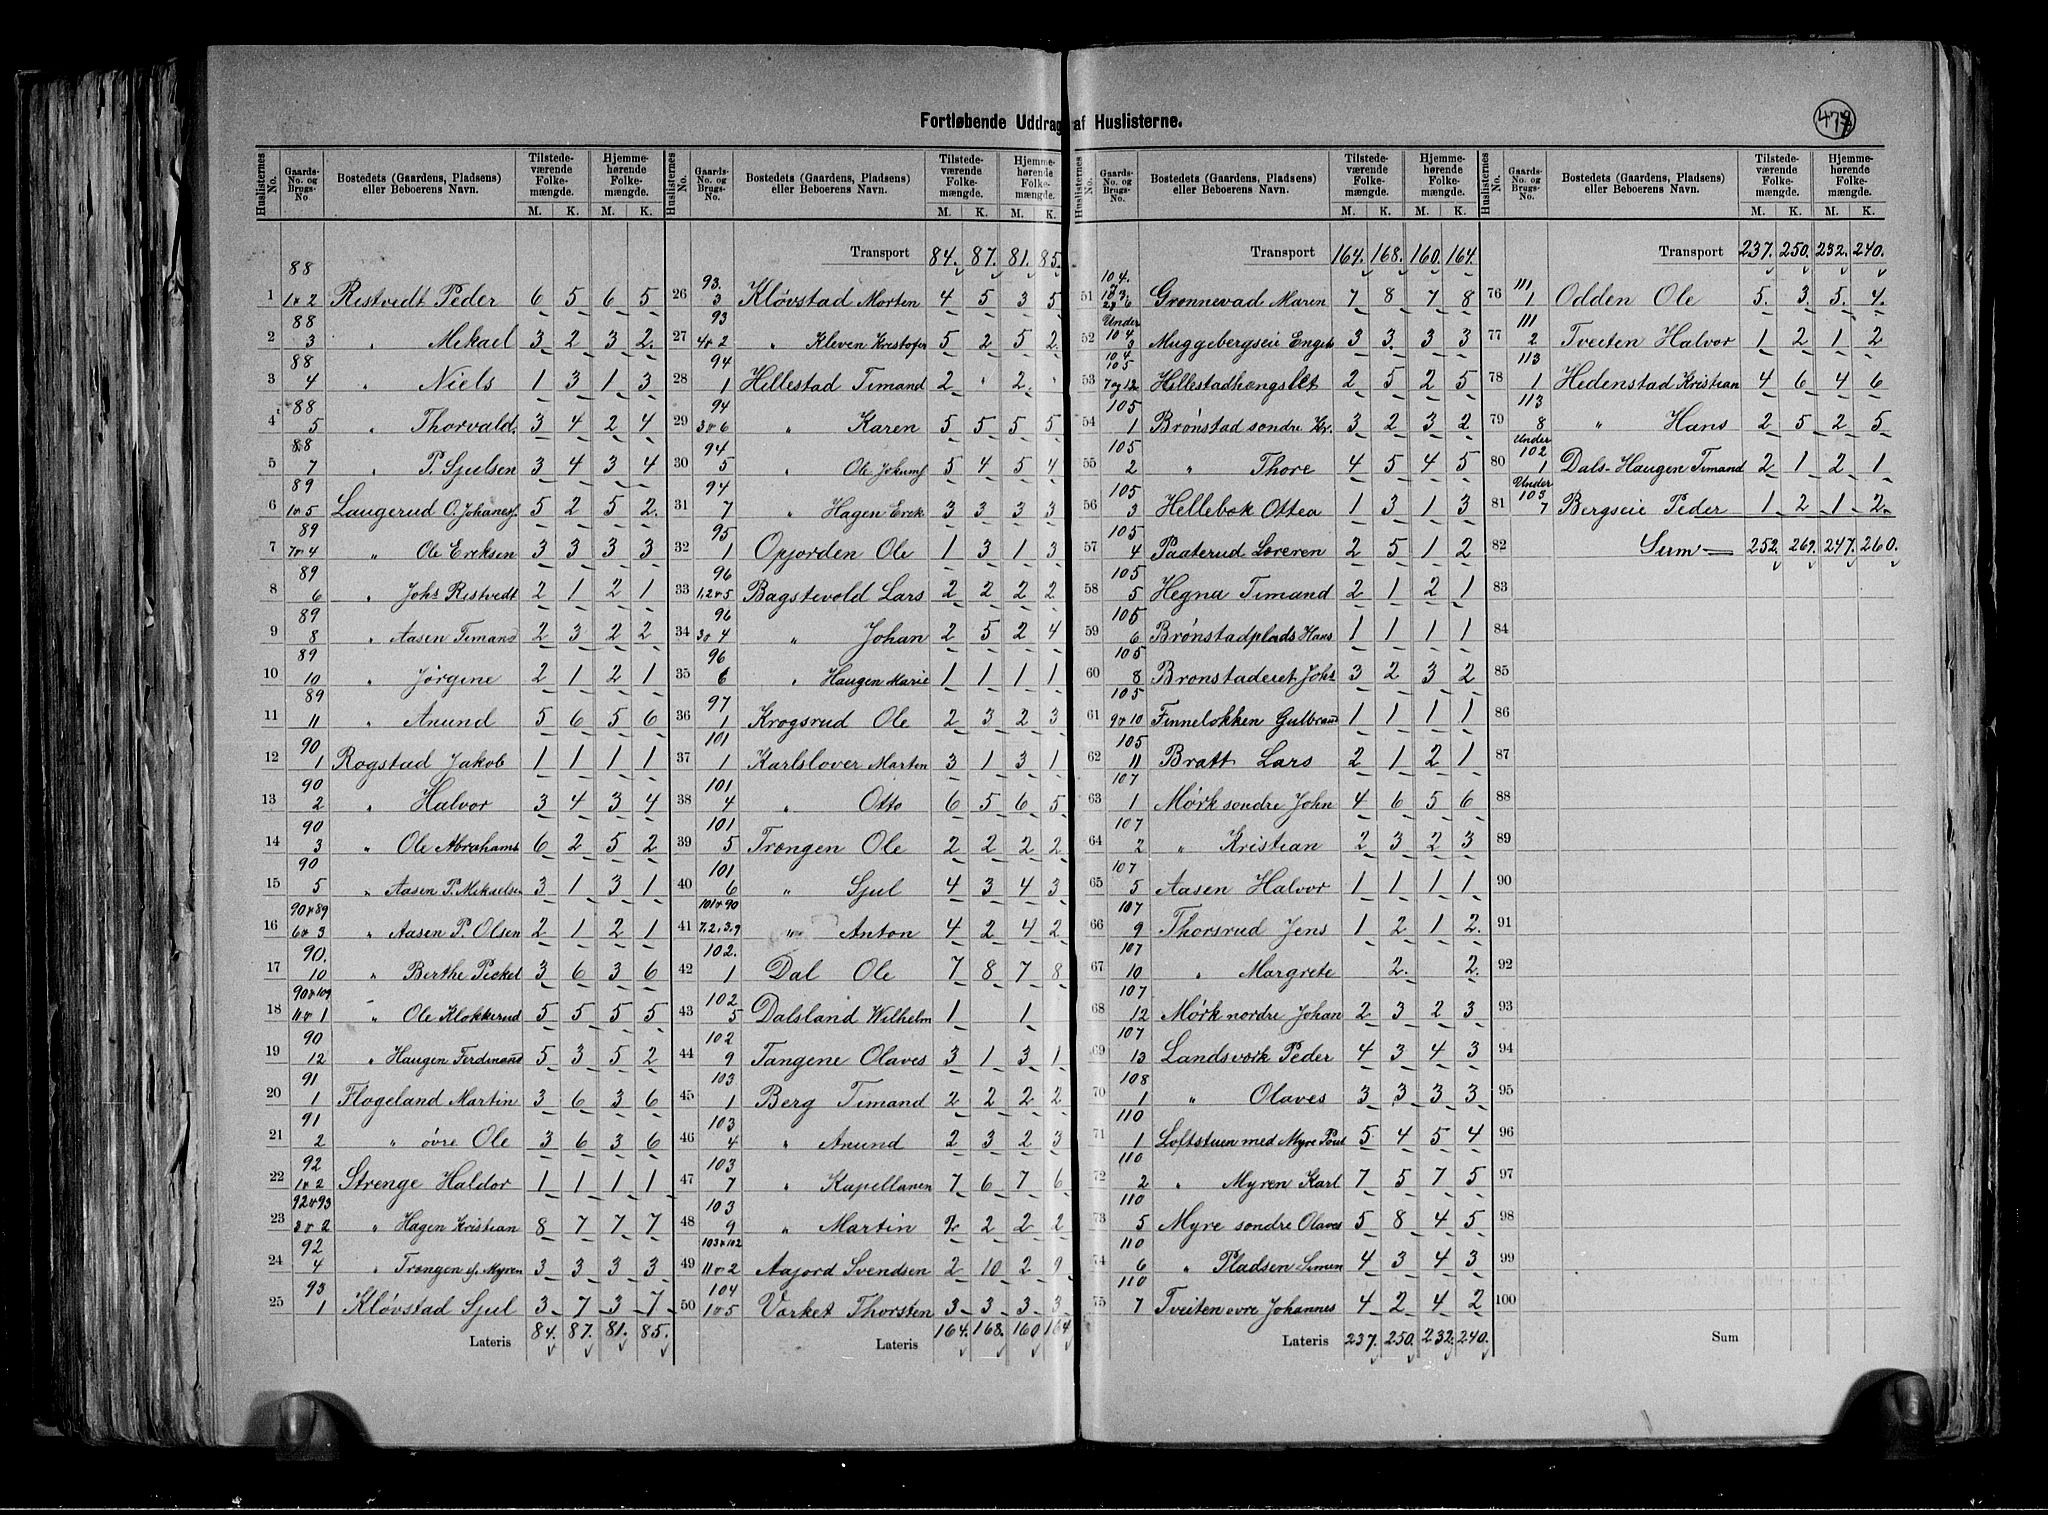 Fortløbende Uddrag af Huslisterne.
479
Huslisternes No. Gaards-No. og Brugs-No Bostedets (Gaardens, Pladsens) eller Beboerens Navn. Tilstedeværende Folkemængde. M. K. Hjemmehørende Folkemængde. M. K.
88
1 1 & 2 Ristvedt Peder 6 5 6 5
88
2 3 " Mikael 3 2 3 2
88
3 4 " Niels 1 3 1 3
88
4 5 " Thorvald 3 4 2 4
88
5 7 " P. Sjulsen 3 4 3 4
89
6 1 & 5 Laugerud O. Johanes. 5 2 5 2
89
7 7 & 4 " Ole Eriksen 3 3 3 3
89
8 6 " Johs Ristvedt 2 1 2 1
89
9 8 " Aasen Timand 2 3 2 2
89
10 10 " Jørgine 2 1 2 1
89
11 11 " Anund 5 6 5 6
90
12 1 Rogstad Jakob 1 1 1 1
90
13 2 " Halvor 3 4 3 4
90
14 3 " Ole Abrahams 6 2 5 2
90
15 5 " Aasen P. Mikaelsen 3 1 3 1
90 & 89
16 6 & 3 " Aasen P. Olsen 2 1 2 1
90.
17 10 " Berthe Pickel 3 6 3 6
90 & 109
18 11 & 1 " Ole Klokkerud 5 5 5 5
90
19 12 " Haugen Ferdinand 5 3 5 2
91
20 1 Flogeland Martin 3 6 3 6
91
21 2 " øvre Ole 3 6 3 6
92
22 1 & 2 Strenge Haldor 1 1 1 1
92 & 93
23 3 & 2 " Hagen Kristian 8 7 7 7
92
24 4 " Trongen s/ Myren 3 3 3 3
93
25 1 Kløvstad Sjul 3 7 3 7
Lateris 84. 87. 81. 85.
Huslisternes No. Gaards-No. og Brugs-No. Bostedets (Gaardens, Pladsens) eller Beboerens Navn. Tilstedeværende Folkemængde. M. K. Hjemmehørende Folkemængde. M. K.
Transport 84. 87. 81. 85.
93.
26 3 Kløvstad Morten 4 5 3 5
93
27 4 & 2 " Kleven Kristofer 5 2 5 2
94
28 1 Hillestad Timand 2 " 2 "
94
29 3 & 6 " Karen 5 5 5 5
94
30 5 " Ole Jokums 5 4 5 4
94
31 7 " Hagen Erik 3 3 3 3
95
32 1 Opjorden Ole 1 3 1 3
96
33 1,2 & 5 Bagstevold Lars 2 2 2 2
96
34 3 & 4 " Johan 2 5 2 4
96
35 6 " Haugen Marie 1 1 1 1
97
36 1 Krogsrud Ole 2 3 2 3
101
37 1 Karlslover Martin 3 1 3 1
101
38 4 " Otto 6 5 6 5
101
39 5 Trongen Ole 2 2 2 2
101
40 6 " Sjul 4 3 4 3
101 & 90
41 7.2.3.9 " Anton 4 2 4 2
102.
42 1 Dal Ole 7 8 7 8
102
43 5 Dalsland Wilhelm 1 1
102
44 9 Tangene Olaves 3 1 3 1
103
45 1 Berg Timand 2 2 2 2
103
46 4 " Anund 2 3 2 3
103
47 7 " Kapellanen 7 6 7 6
103
48 9 " Martin 2 2 2 2
103 & 102
49 11 & 2 Aajord Svendsen 2 10 2 9
104
50 1 & 5 Værket Thorsten 3 3 3 3
Lateris 164. 168. 160 164
Huslisternes No. Gaards-No. og Brugs-No. Bostedets (Gaardens, Pladsens) eller Beboerens Navn. Tilstedeværende Folkemængde. M. K. Hjemmehørende Folkemængde. M. K.
Transport 164. 168. 160. 164.
104.
51 Grønnevad Maren 7 8 7 8
Under 104
52 3 Muggebergseie Engeb 3 3 3 3
104 105
53 7 og 12 Hillestadhengslet 2 5 2 5
105
54 1 Brønstad søndre Kr. 3 2 3 2
105
55 2 " Thore 4 5 4 5
105
56 3 Hellebæk Ottea 1 3 1 3
105
57 4 Paaterud Loreren 2 5 1 2
105
58 5 Hegna Timand 2 1 2 1
105
59 6 Brønstadplads Hans 1 1 1 1
105
60 8 Brønstaderet Johs 3 2 3 2
105
61 9 & 10 Finneløkken Gulbrand 1 1 1 1
105
62 11 Bratt Lars 2 1 2 1
107
63 1 Mørk søndre John 4 6 5 6
107
64 2 " Kristian 2 3 2 3
107
65 5 Aasen Halvor 1 1 1 1
107
66 9 Thorsrud Jens 1 2 1 2
107
67 10 " Margrete 2 2
107
68 12 Mørk nordre Johan 2 3 2 3
107
69 13 Landsværk Peder 4 3 4 3
108
70 1 " Olaves 3 3 3 3
110
71 1 Loftstuen med Myre Poul 5 4 5 4
110
72 2 " Myren Karl 7 5 7 5
110
73 5 Myre søndre Olaves 5 8 4 5
110
74 6 " Pladsen Simen 4 3 4 3
110
75 7 Tveiten øvre Johannes 4 2 4 2
Lateris 237. 250. 232. 240.
Huslisternes No. Gaards-No. og Brugs-No. Bostedets (Gaardens, Pladsens) eller Beboerens Navn. Tilstedeværende Folkemængde. M. K. Hjemmehørende Folkemængde. M. K.
Transport 237. 250. 232. 240.
111
76 1 Odden Ole 5. 3. 5. 4.
111
77 2 Tveiten Halvor 1 2 1 2
113
78 1 Hedenstad Kristian 4 6 4 6
113
79 8 " Hans 2 5 2 5
Under 102
80 1 Dals-Haugen Timand 2 1 2 1
Under 103
81 7 Bergseie Peder 1 2 1 2
82 Sum 252. 269. 247. 260.
83
84
85
86
87
88
89
90
91
92
93
94
95
96
97
98
99
100
Sum